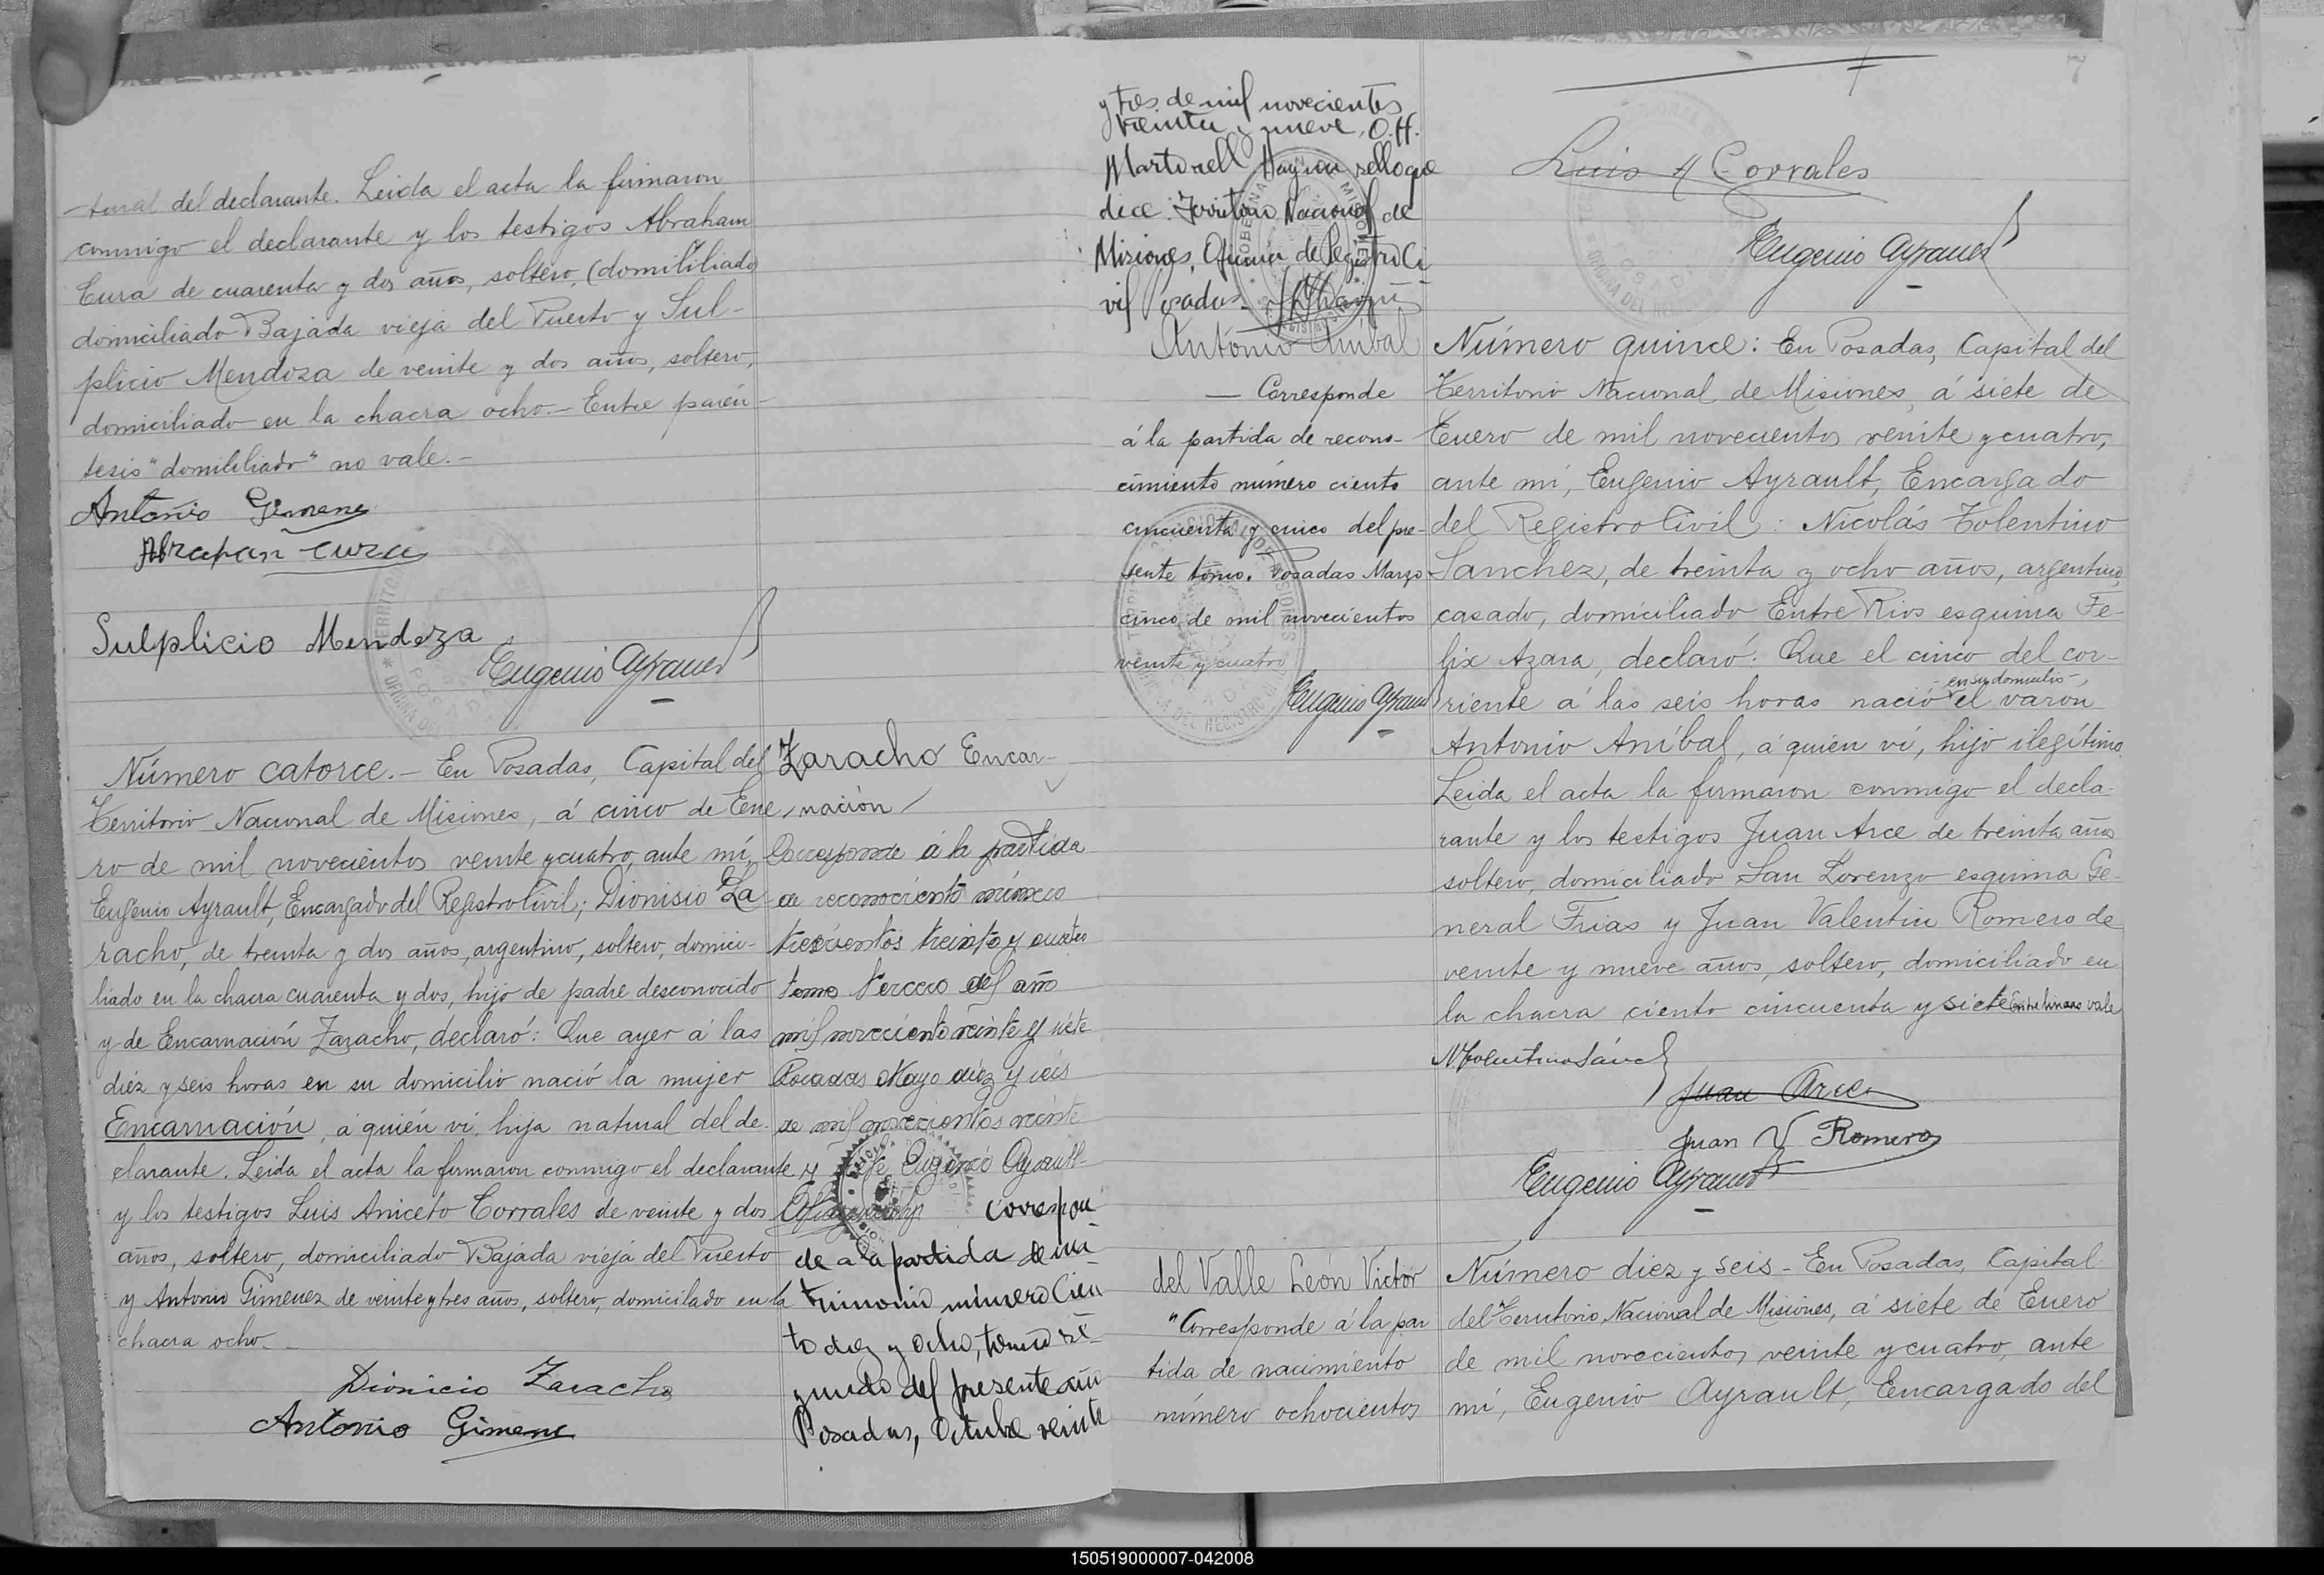 -tural del declarante. Leida el acta la firmaron
conmigo el declarante y los testigos Abraham
Cura de cuarenta y dos años, soltero, (domililiado)
domiciliado Bajada vieja del Puerto y Sul-
plicio Mendoza de veinte y dos años, soltero,
domiciliado en la chacra ocho.- Entre parén-
tesis "domililiado" no vale.-
Antonio Gimenez
Abrahan Cura
Sulplicio Mendoza
Eugenio Ayrault
Número catorce.- En Posadas, Capital del
Territorio Nacional de Misiones, á cinco de Ene
ro de mil novecientos veinte y cuatro, ante mí,
Eugenio Ayrault, Encargado del Registro Civil; Dionisio Za
racho, de treinta y dos años, argentino, soltero, domici-
liado en la chacra cuarenta y dos, hijo de padre desconocido
y de Encarnación Zaracho, declaró: Que ayer á las
diéz y seis horas en su domicilio nació la mujer
Encarnación, á quién ví, hija natural del de-
clarante. Leida el acta la firmaron conmigo el declarante
y los testigos Luis Aniceto Corrales de veinte y dos
años, soltero, domiciliado Bajada vieja del Puerto
y Antonio Gimenez de veinte y tres años, soltero, domicilado en la
chacra ocho.-
Dionicio Zaracho
Antonio Gimene
Zaracho Encar-
nación
Corresponde á la partida
de reconocimiento número
trescientos treinta y cuatro
tomo tercero del año
mil novecientos veinte y siete
Posadas Mayo diéz y seis
de mil novecientos veinte
y Eugenio Ayrault
Correspon
de a la partida de ma-
trimonio número Cien
to diez y ocho, tomo se-
gundo del presente año
Posadas, Octubre veinte
y tres de mil novecientos
treinta y nueve, O.H.
Martorell Hay un sello que
dice: Territorio Nacional de
Misiones, Oficina de Registro Ci
vil Posadas-
Antonio Aníbal
- Corresponde
á la partida de recono-
cimiento número ciento
cincuenta y cinco del pre-
sente tomo. Posadas Marzo
cinco de mil novecientos
veinte y cuatro
Eugenio Ayrault
del Valle León Victor
"Corresponde á la par
tida de nacimiento
número ochocientos
7
Luis A Corrales
Eugenio Ayrault
Número quince: En Posadas, Capital del
Territorio Nacional de Misiones, á siete de
Enero de mil novecientos veinte y cuatro,
ante mí, Eugenio Ayrault, Encargado
del Registro Civil: Nicolás Tolentino
Sanchez, de treinta y ocho años, argentino,
casado, domiciliado Entre Rios esquina Fe-
lix Azara, declaró: Que el cinco del cor-
-en su domicilio-,
riente á las seis horas nació el varón
Antonio Aníbal, á quién ví, hijo ilegítimo.
Leida el acta la firmaron conmigo el decla-
rante y los testigos Juan Arce de treinta años
soltero, domiciliado San Lorenzo esquina Ge-
neral Frias y Juan Valentin Romero de
veinte y nueve años, soltero, domiciliado en
la chacra ciento cincuenta y siete Entre lineas vale
N Tolentino Sánchez
Juan Arce
Juan V Romero
Eugenio Ayrault
Número diez y seis - En Posadas, Capital
del Territorio Nacional de Misiones, á siete de Enero
de mil novecientos veinte y cuatro, ante
mí, Eugenio Ayrault, Encargado del
150519000007-042008